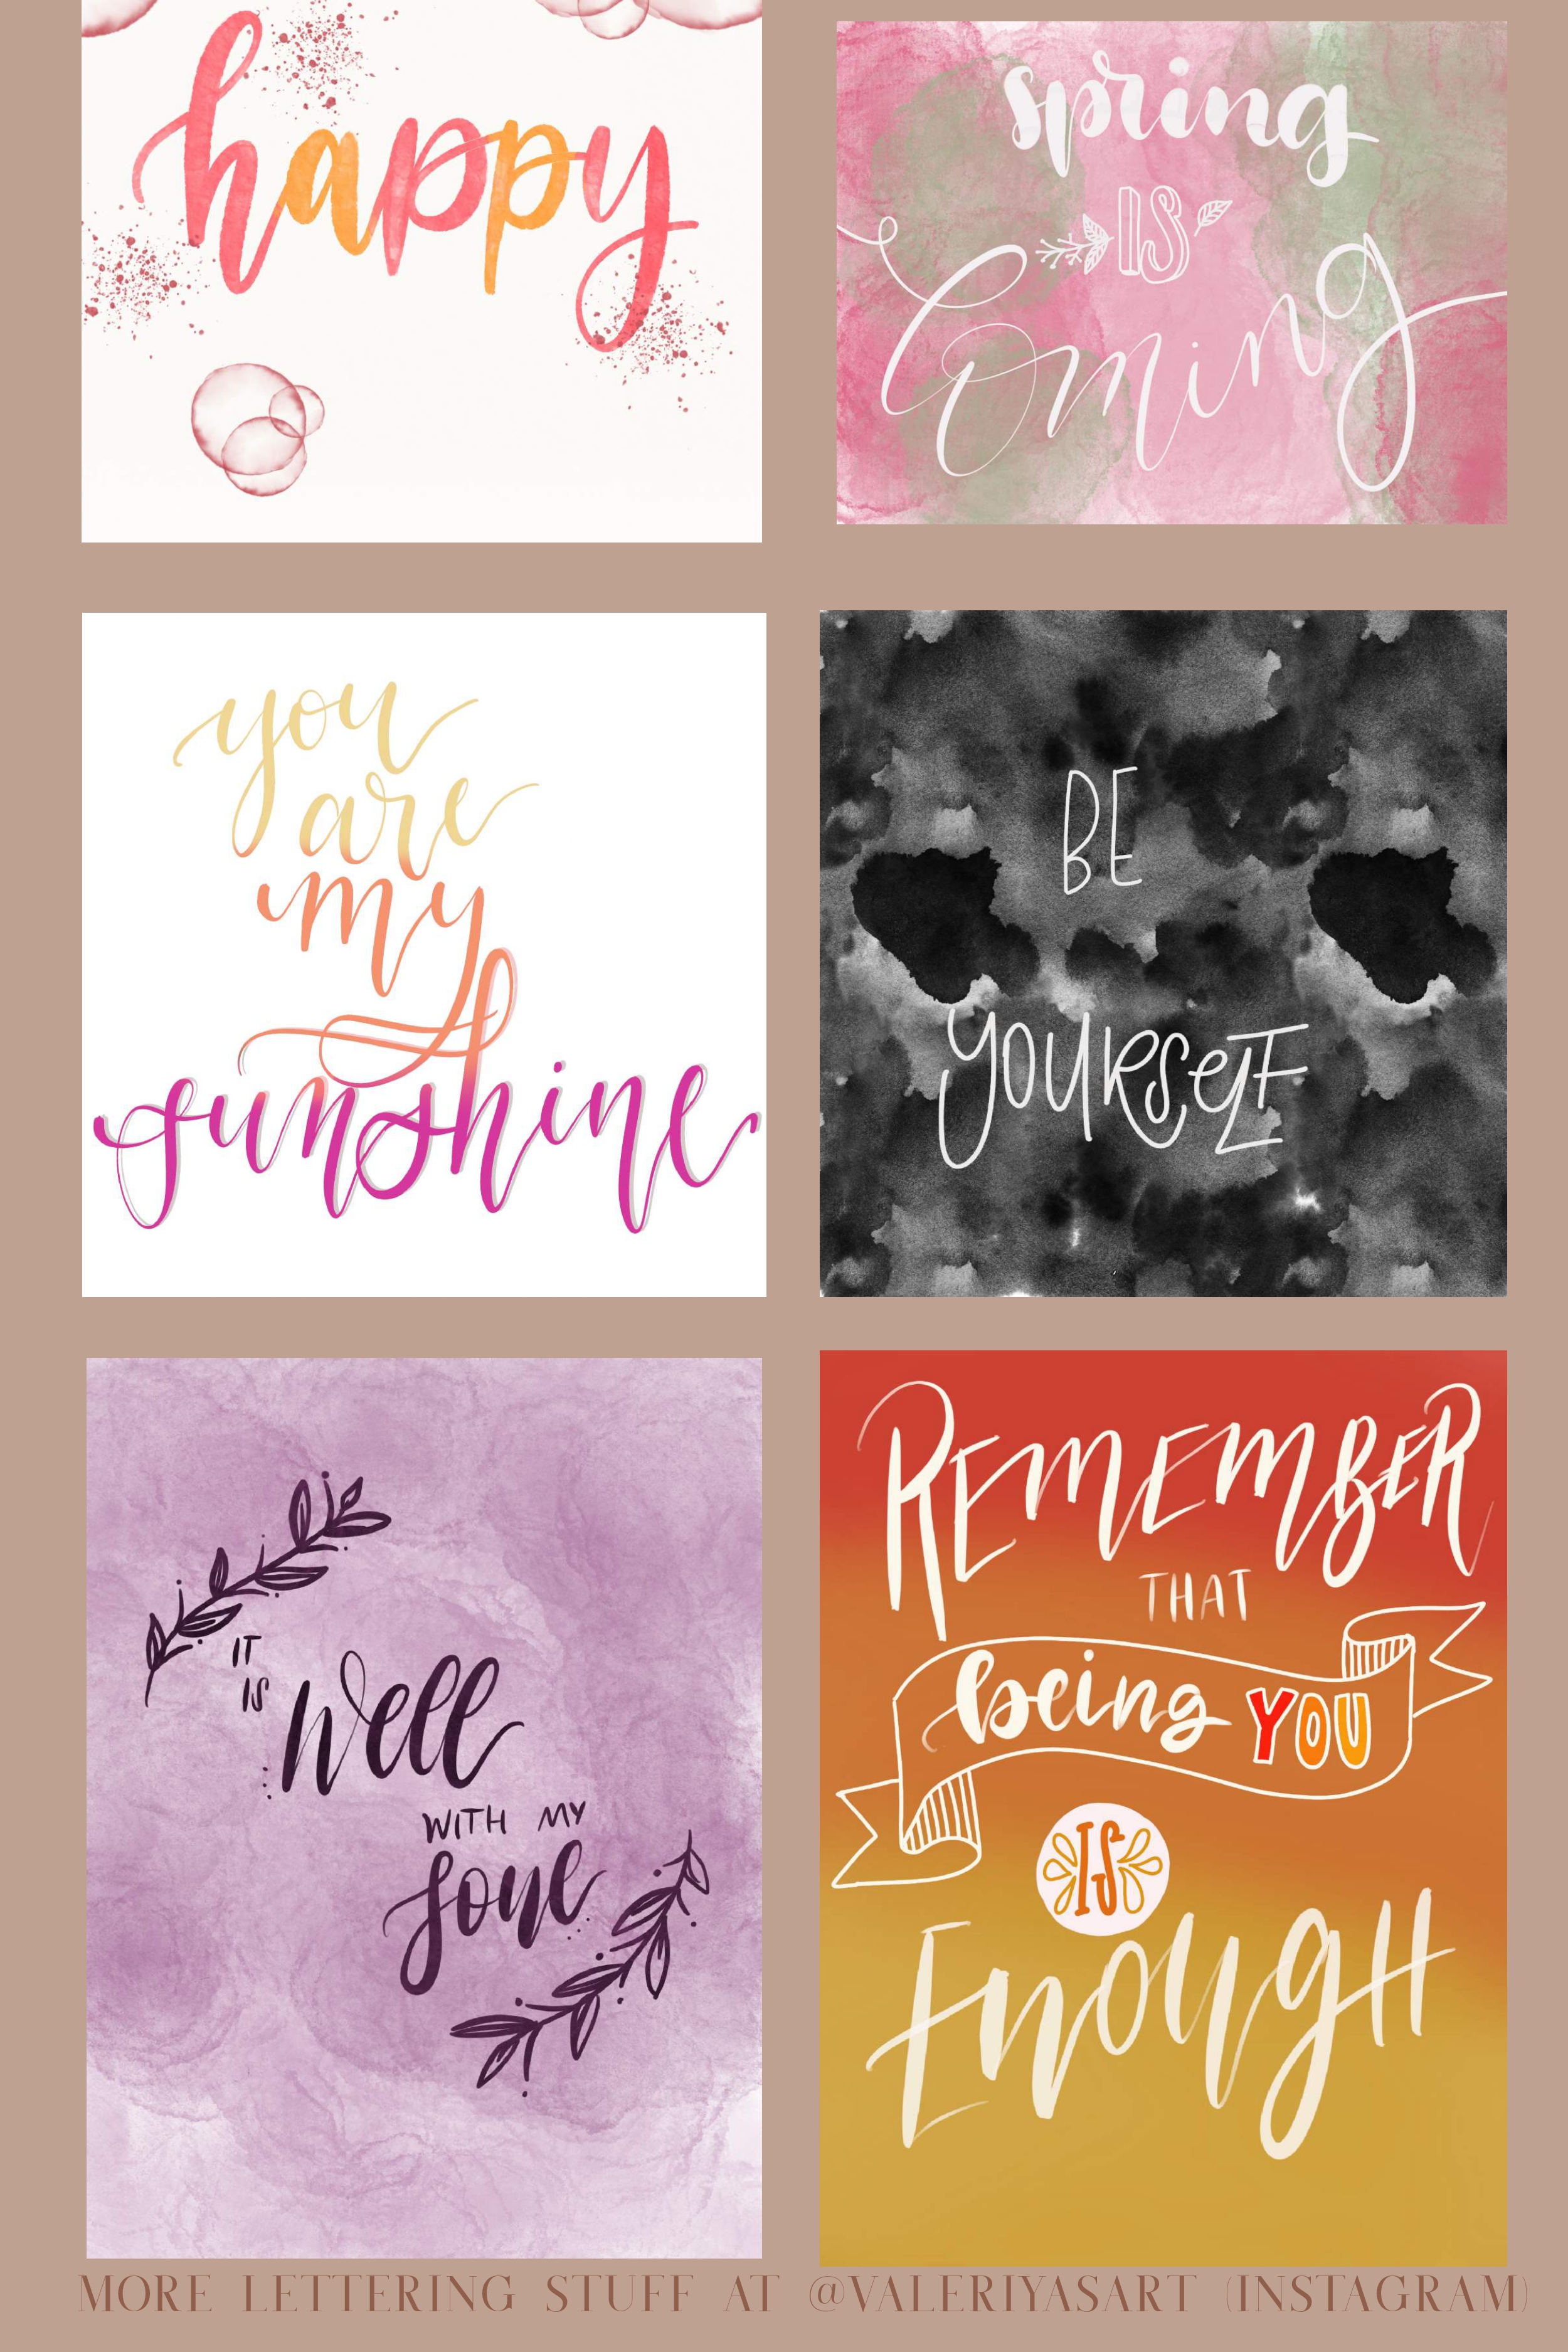 happy
spring
IS
Coming
you
are
my
sunshine
BE
YOURSELF
IT
IS
Well
WITH MY
soue
REMEMBER
THAT
being YOU
IS
EnougH
MORE LETTERING STUFF AT @VALERIYASART (INSTAGRAM)